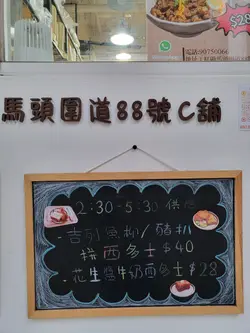 $28
電話:9075006
馬頭圍道88號C舖
2:30-5:30 供應
-吉列魚柳/豬扒
拼西多士 $40
-花生醬牛奶西多士 $28